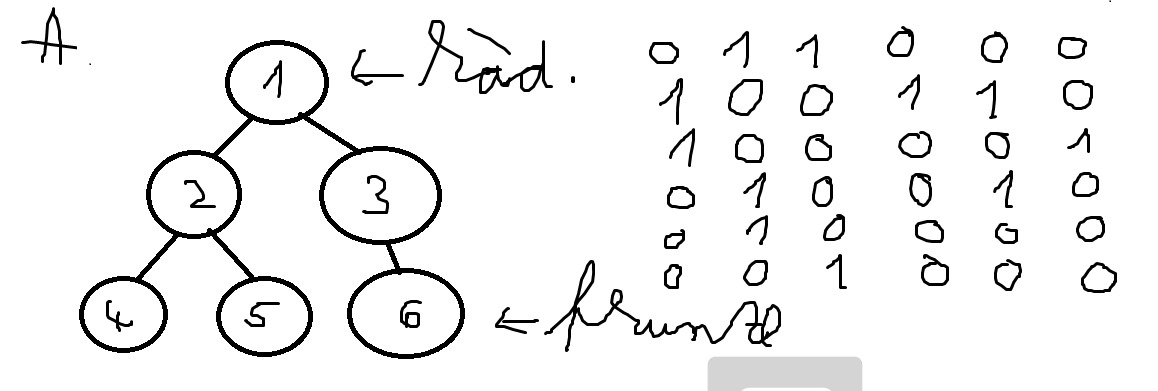 A.
1 ← răd.
2 3
4 5 6 ← frunze
0 1 1 0 0 0
1 0 0 1 1 0
1 0 0 0 0 1
0 1 0 0 1 0
0 1 0 0 0 0
0 0 1 0 0 0